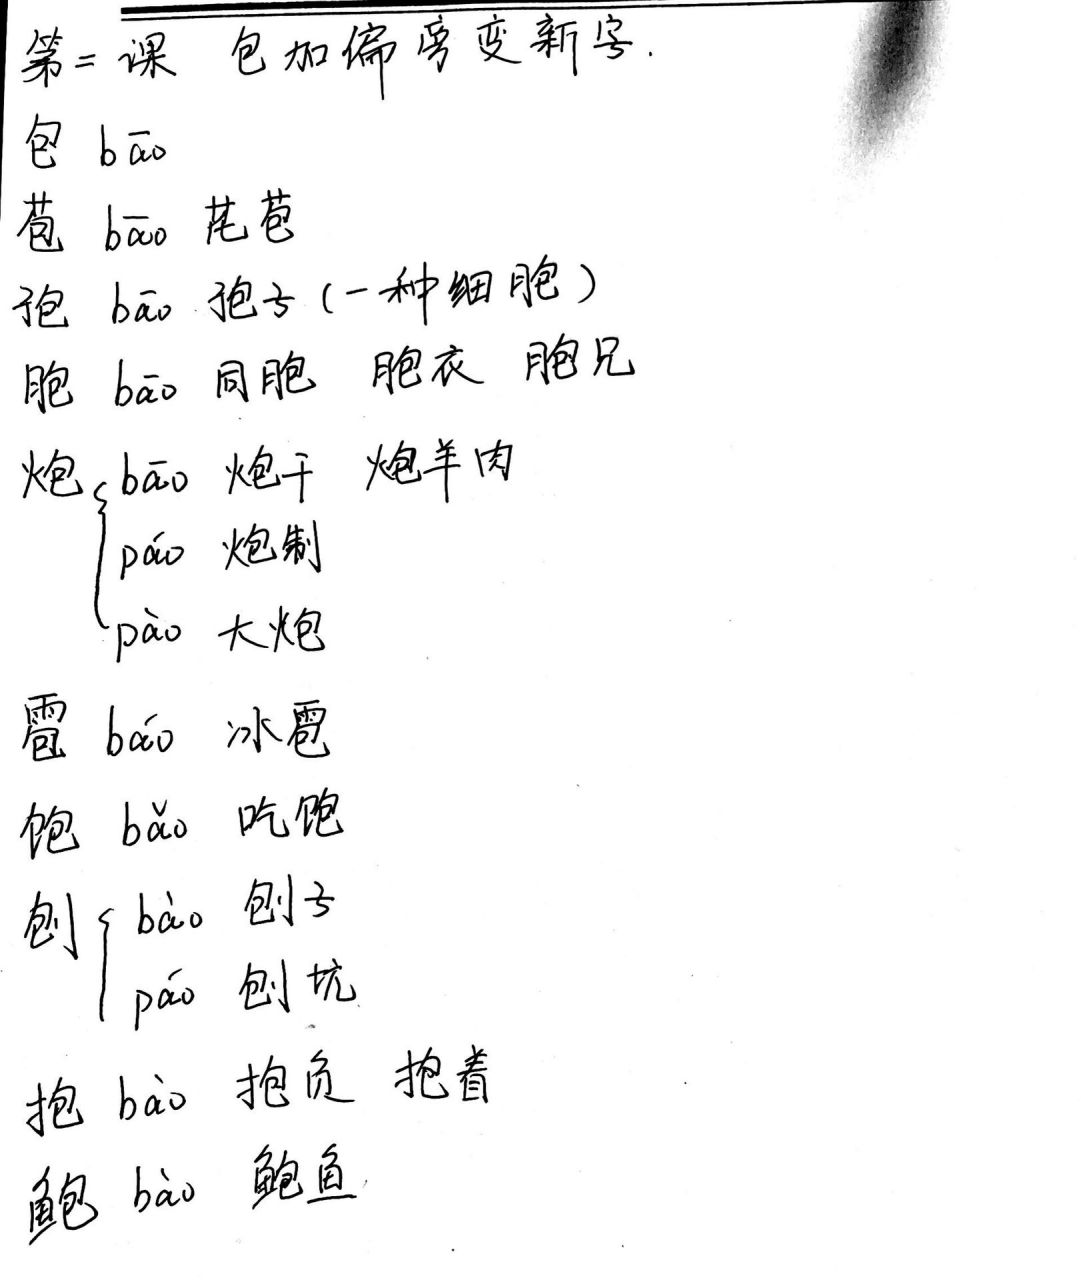 第二课 包加偏旁变新字.
包 bāo
苞 bāo 花苞
孢 bāo 孢子(一种细胞)
胞 bāo 同胞 胞衣 胞兄
炮 bāo 炮干 炮羊肉
páo 炮制
pào 大炮
雹 báo 冰雹
饱 bǎo 吃饱
刨 bào 刨子
páo 刨坑
抱 bào 抱负 抱着
鲍 bào 鲍鱼